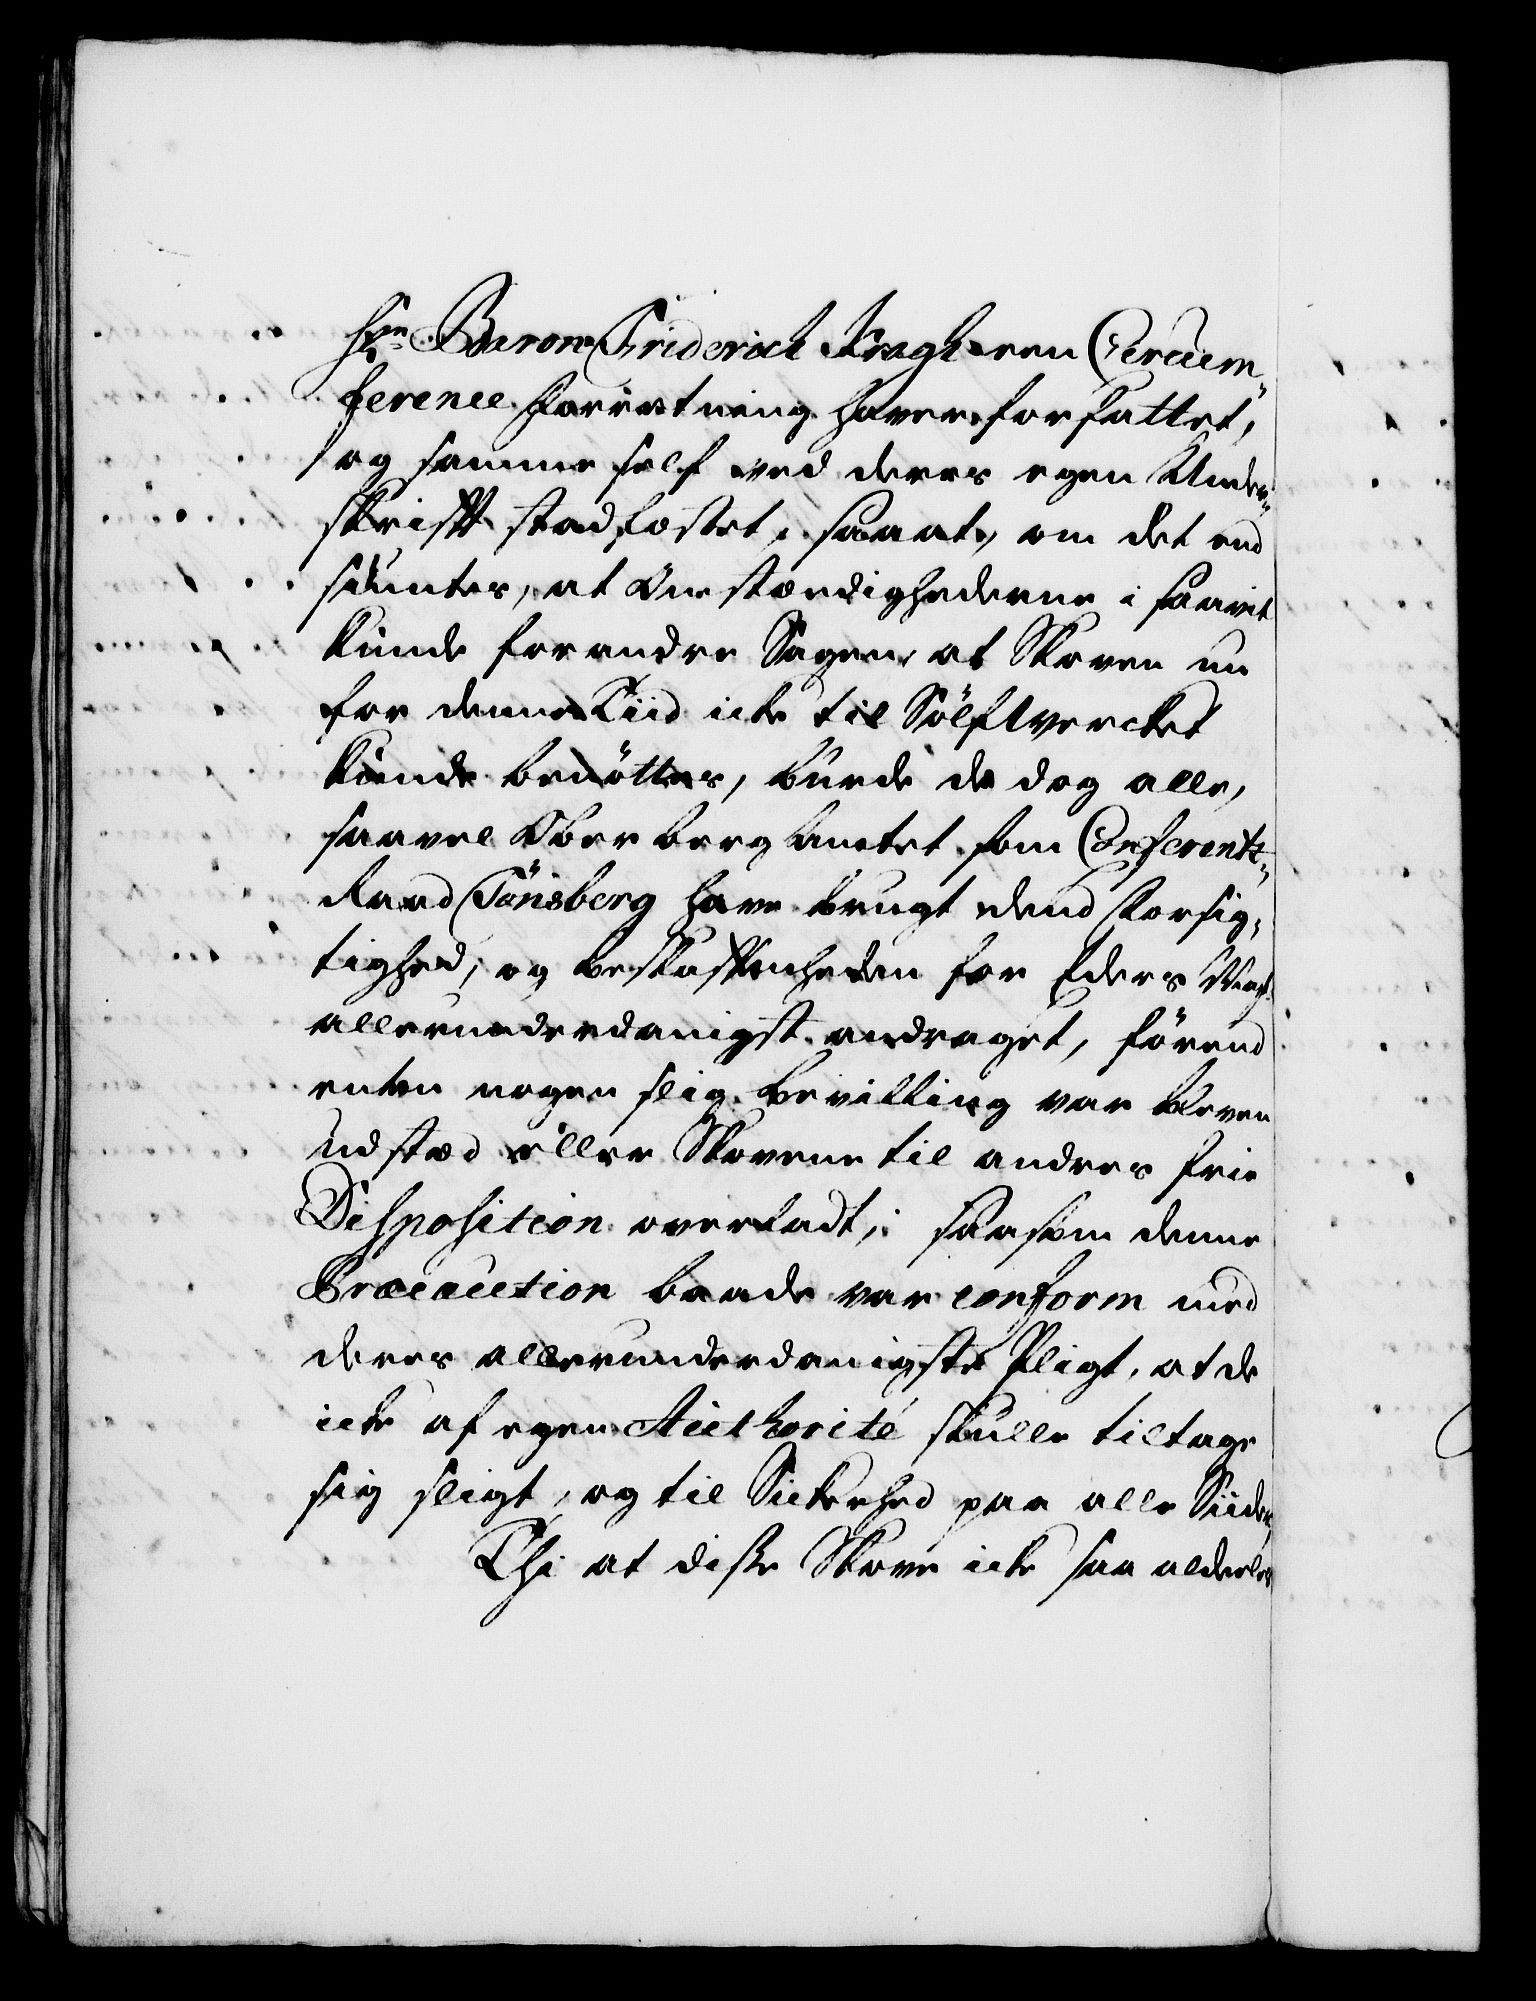 Hr: Baron Friderich Kragh een Circum„
ference Forretning haver forfattet,
og samme self ved deres egen Under„
skrifft stadfæstet, saa at, om det end
siuntes, at Omstændighederne i saavit
kunde forandre Sagen, at Skoven nu
for denne Tiid icke til Sölfverket
kunde benöttes, burde de dog alle,
saavel Oberbergamtet som Conferentz„
Raad Tönsberg have brugt dend Forsig„
tighed, og beskaffenheden for Eders May:
allerunderdanigst andraget, förend
enten nogen slig bevilling var bleven
udstæd eller Skovene til andres frie
Disposition overladt; saasom denne
Præcaution baade var conform med
deres allerunderdanigste Pligt, at de
icke af egen Authorité skulle tiltage
sig sligt, og til Sickerhed paa alle Siider,
Thi at disse Skove icke saa alderles